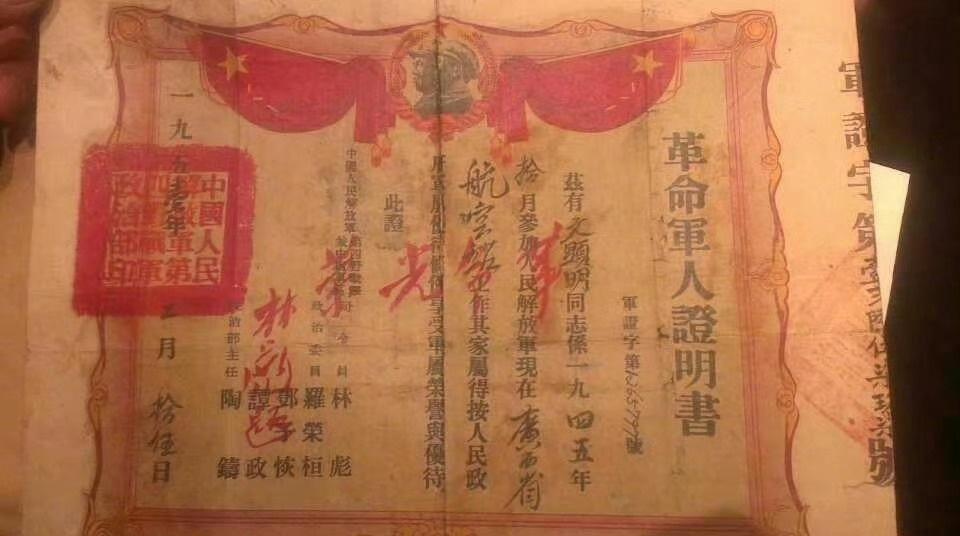 軍證字第
革命軍人證明書
軍證字第1265797號
茲有文顯明同志係一九四五年
拾月參加人民解放軍現在廣西省
航空站工作其家屬得按人民政
府軍屬優待條例享受軍屬榮譽與優待
此證
革命光榮
中國人民解放軍第四野戰軍
司令員 林彪
政治委員 羅榮桓
鄧子恢
譚政
政治部主任 陶鑄
林彪題
中國人民解放軍第四野戰軍政治部印
一九五 年三月拾伍日